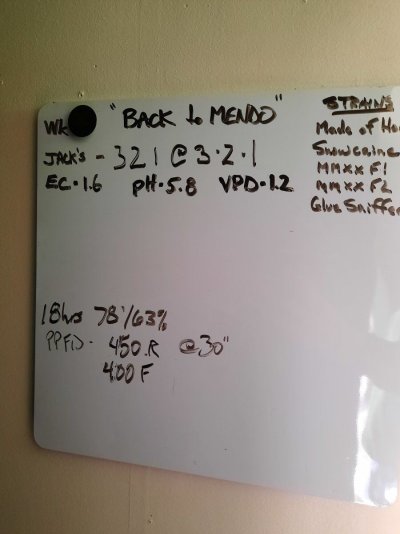 Wk "BACK to MENDO"
JACK'S - 321 @ 3·2·1
EC·1.6 pH·5.8 VPD·1.2
STRAINS
Made of Ho
Snowcrine
MMXX F1
MMXX F2
Glue Sniffer
18hrs 78°/63%
PPFD· 450 R @30"
400 F